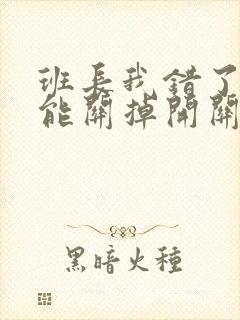 班長我錯了
能關掉開關
黑暗火種